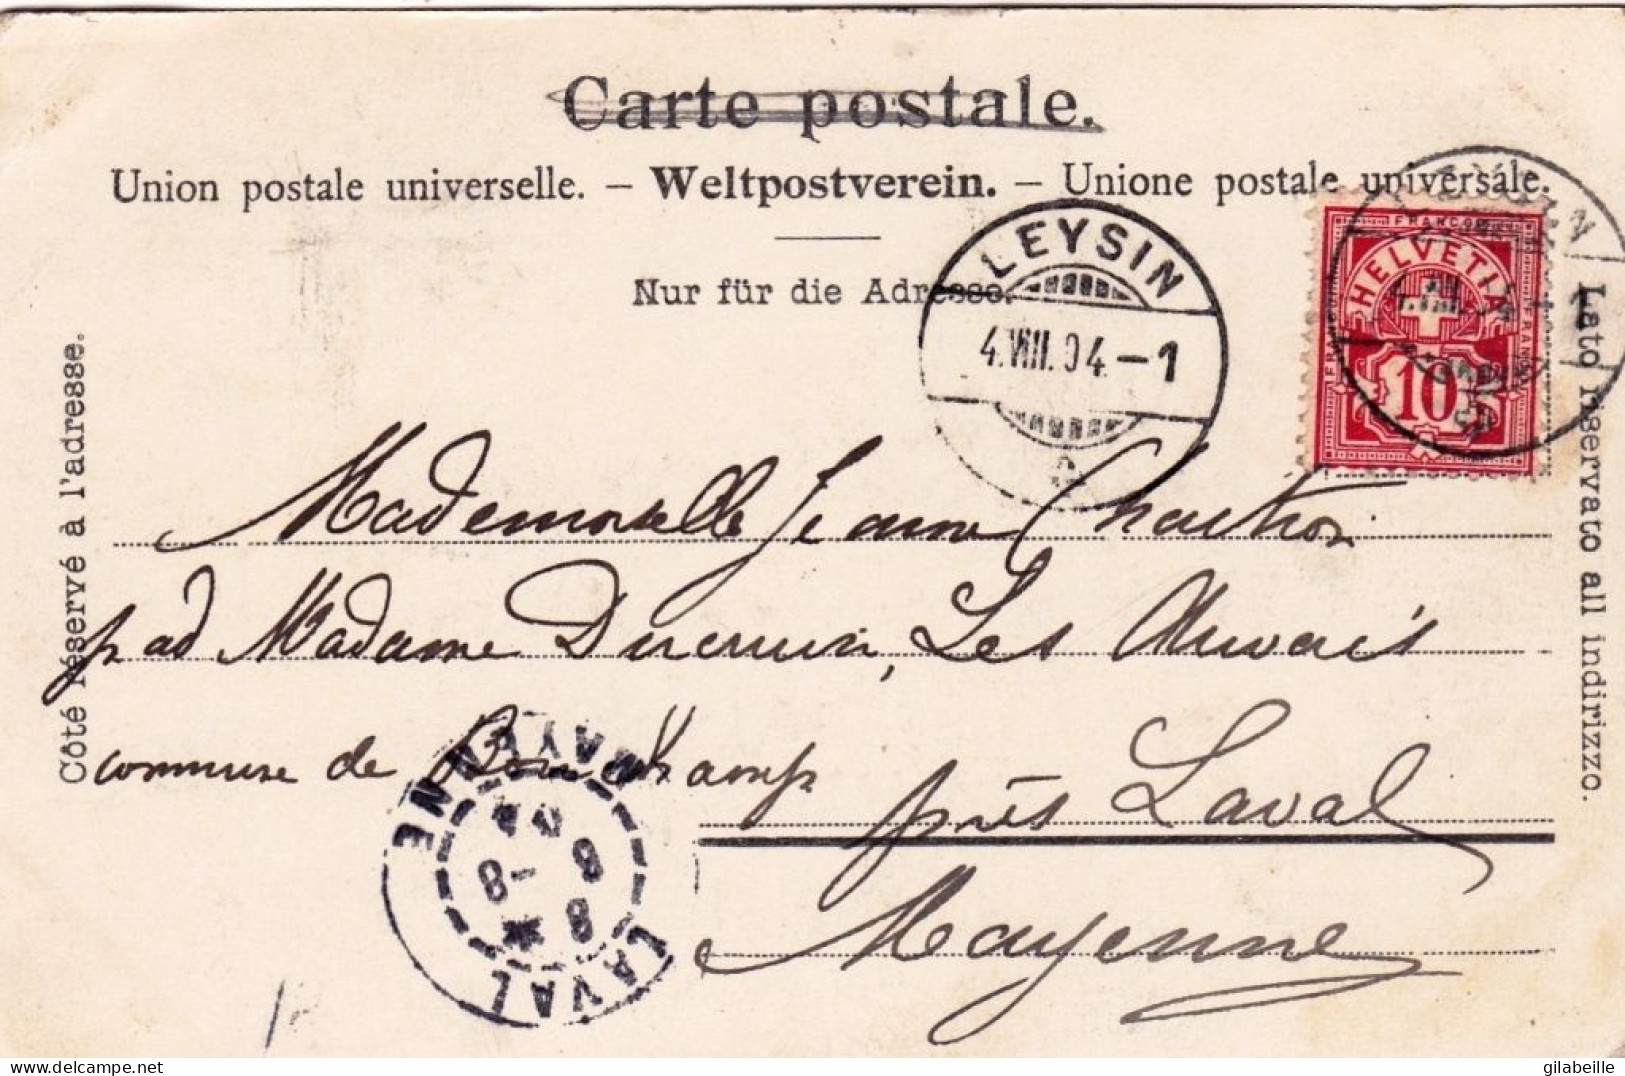 Carte postale.
Union postale universelle. – Weltpostverein. – Unione postale universale.
Nur für die Adresse.
Côté réservé à l'adresse.
Lato riservato all indirizzo.
LEYSIN
4.VIII.04.-1
FRANCO
HELVETIA
FRANCO
10
Mademoiselle Jeanne
Madame Les
commune de
près Laval
Mayenne
LAVAL
MAYENNE
8 8
8 -8
04
gilabeille